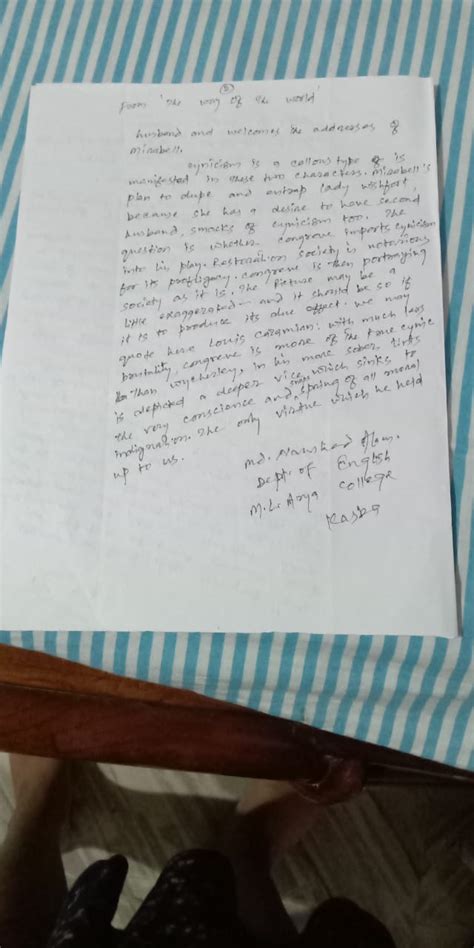 5
From 'The way of The world'
husband and welcomes the addresses of
Mirabell.
cynicism is a callous type of is
manifested in these two characters. Mirabell's
plan to dupe and entrap lady wishfort,
because she has a desire to have second
husband, smacks of cynicism too. The
question is whether congreve imports cynicism
into his play. Restoration society is notorious
for its profligacy. congreve is then portraying
society as it is. The Picture may be a
little exaggerated - and it should be so if
it is to produce its due effect. we may
quote here Louis Cazamian: with much less
brutality, congreve is more of the true cynic
than wycherley, in his more sober tints
is depicted a deeper vice, which sinks to
the very conscience and spring of all moral
indignation. The only virtue which he held
up to us.
Md. Alam.
Dept. of English
M.L. Arya College
Kasba